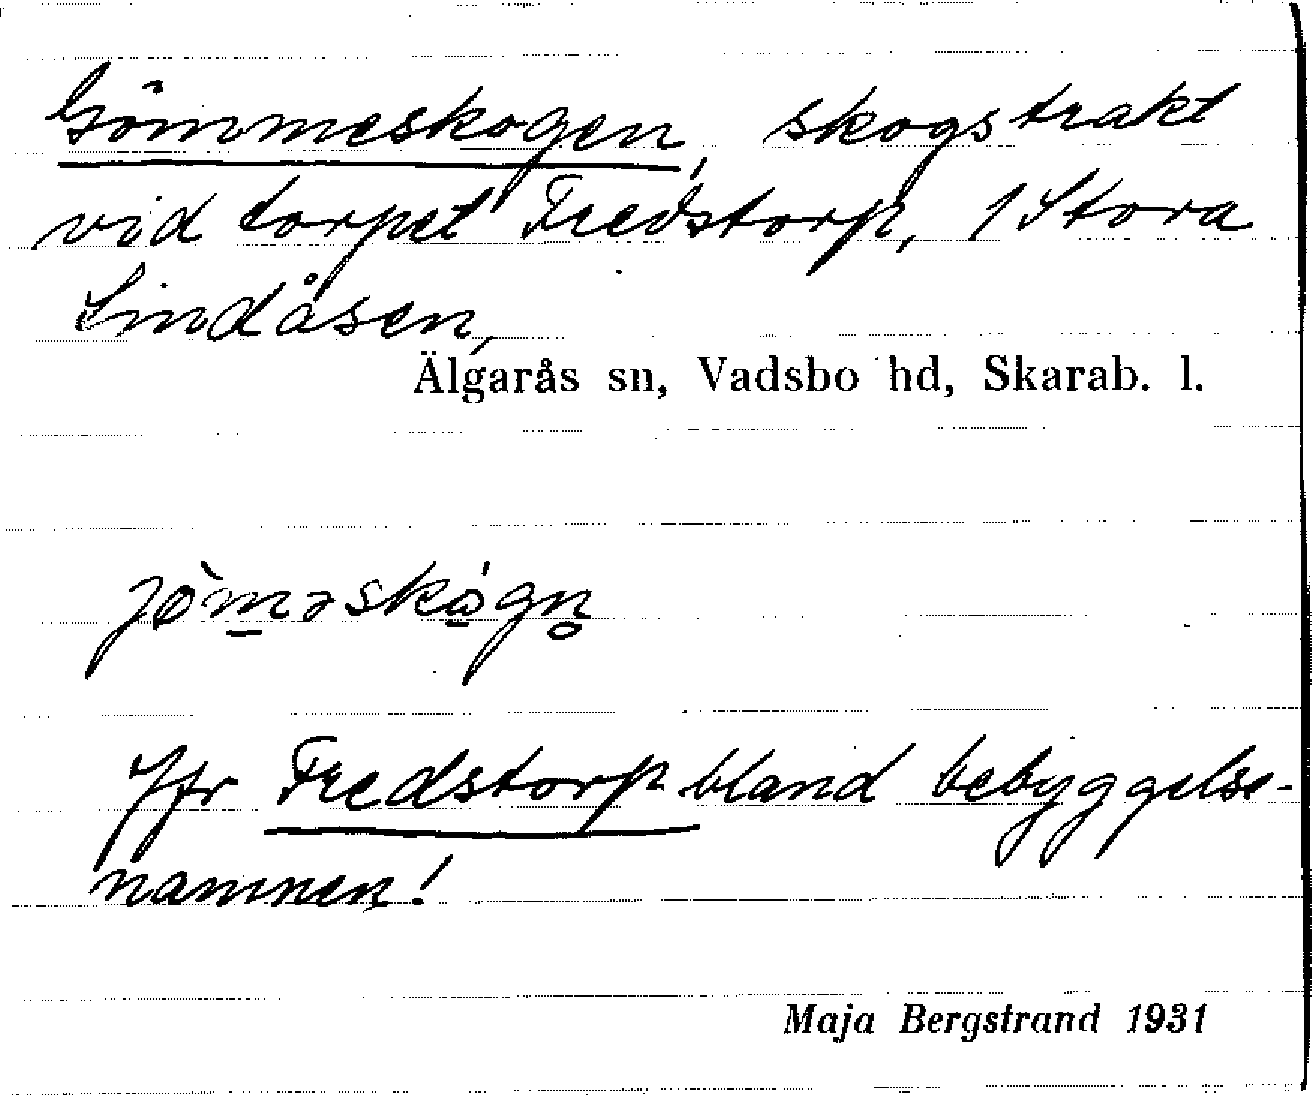 Gömmeskogen, skogstrakt
vid torpet Fredstorp, 1 Stora
Lindåsen,
Älgarås sn, Vadsbo hd, Skarab. l.
jø̀m̠əskǻ̠gn̥
Jfr Fredstorp bland bebyggelse-
namnen!
Maja Bergstrand 1931